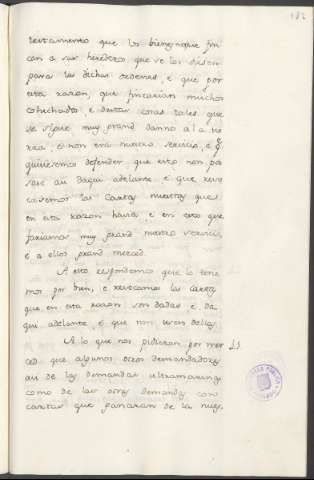 182
testamento que los bienes que fin
can a sus herederos que se los diesen
para las dichas ordenes, e que por
esta razon, que fincarian muchos
cohechados, e destas cosas tales que
se sigue muy grand danno a la n̄ra
e non era nuestro servicio, e q̃
quisiesemos defender que esto non pa
sase asi daqui adelante e que revo
casemos las Cartas nuestras que
en esta razon havia, e en esto que
fariamos muy grand nuestro servicio,
e a ellos grand merced.
A esto respondemos que lo tene
mos por bien, e revocamos las cartas
que en esta razon son dadas e da
qui adelante, e que non usen dellas
A lo que nos pidieron por mer
ced que algunos otros demandadores
asi de las demandas ultramarinas
como de las otras demandas con
cartas que ganaran de la nues